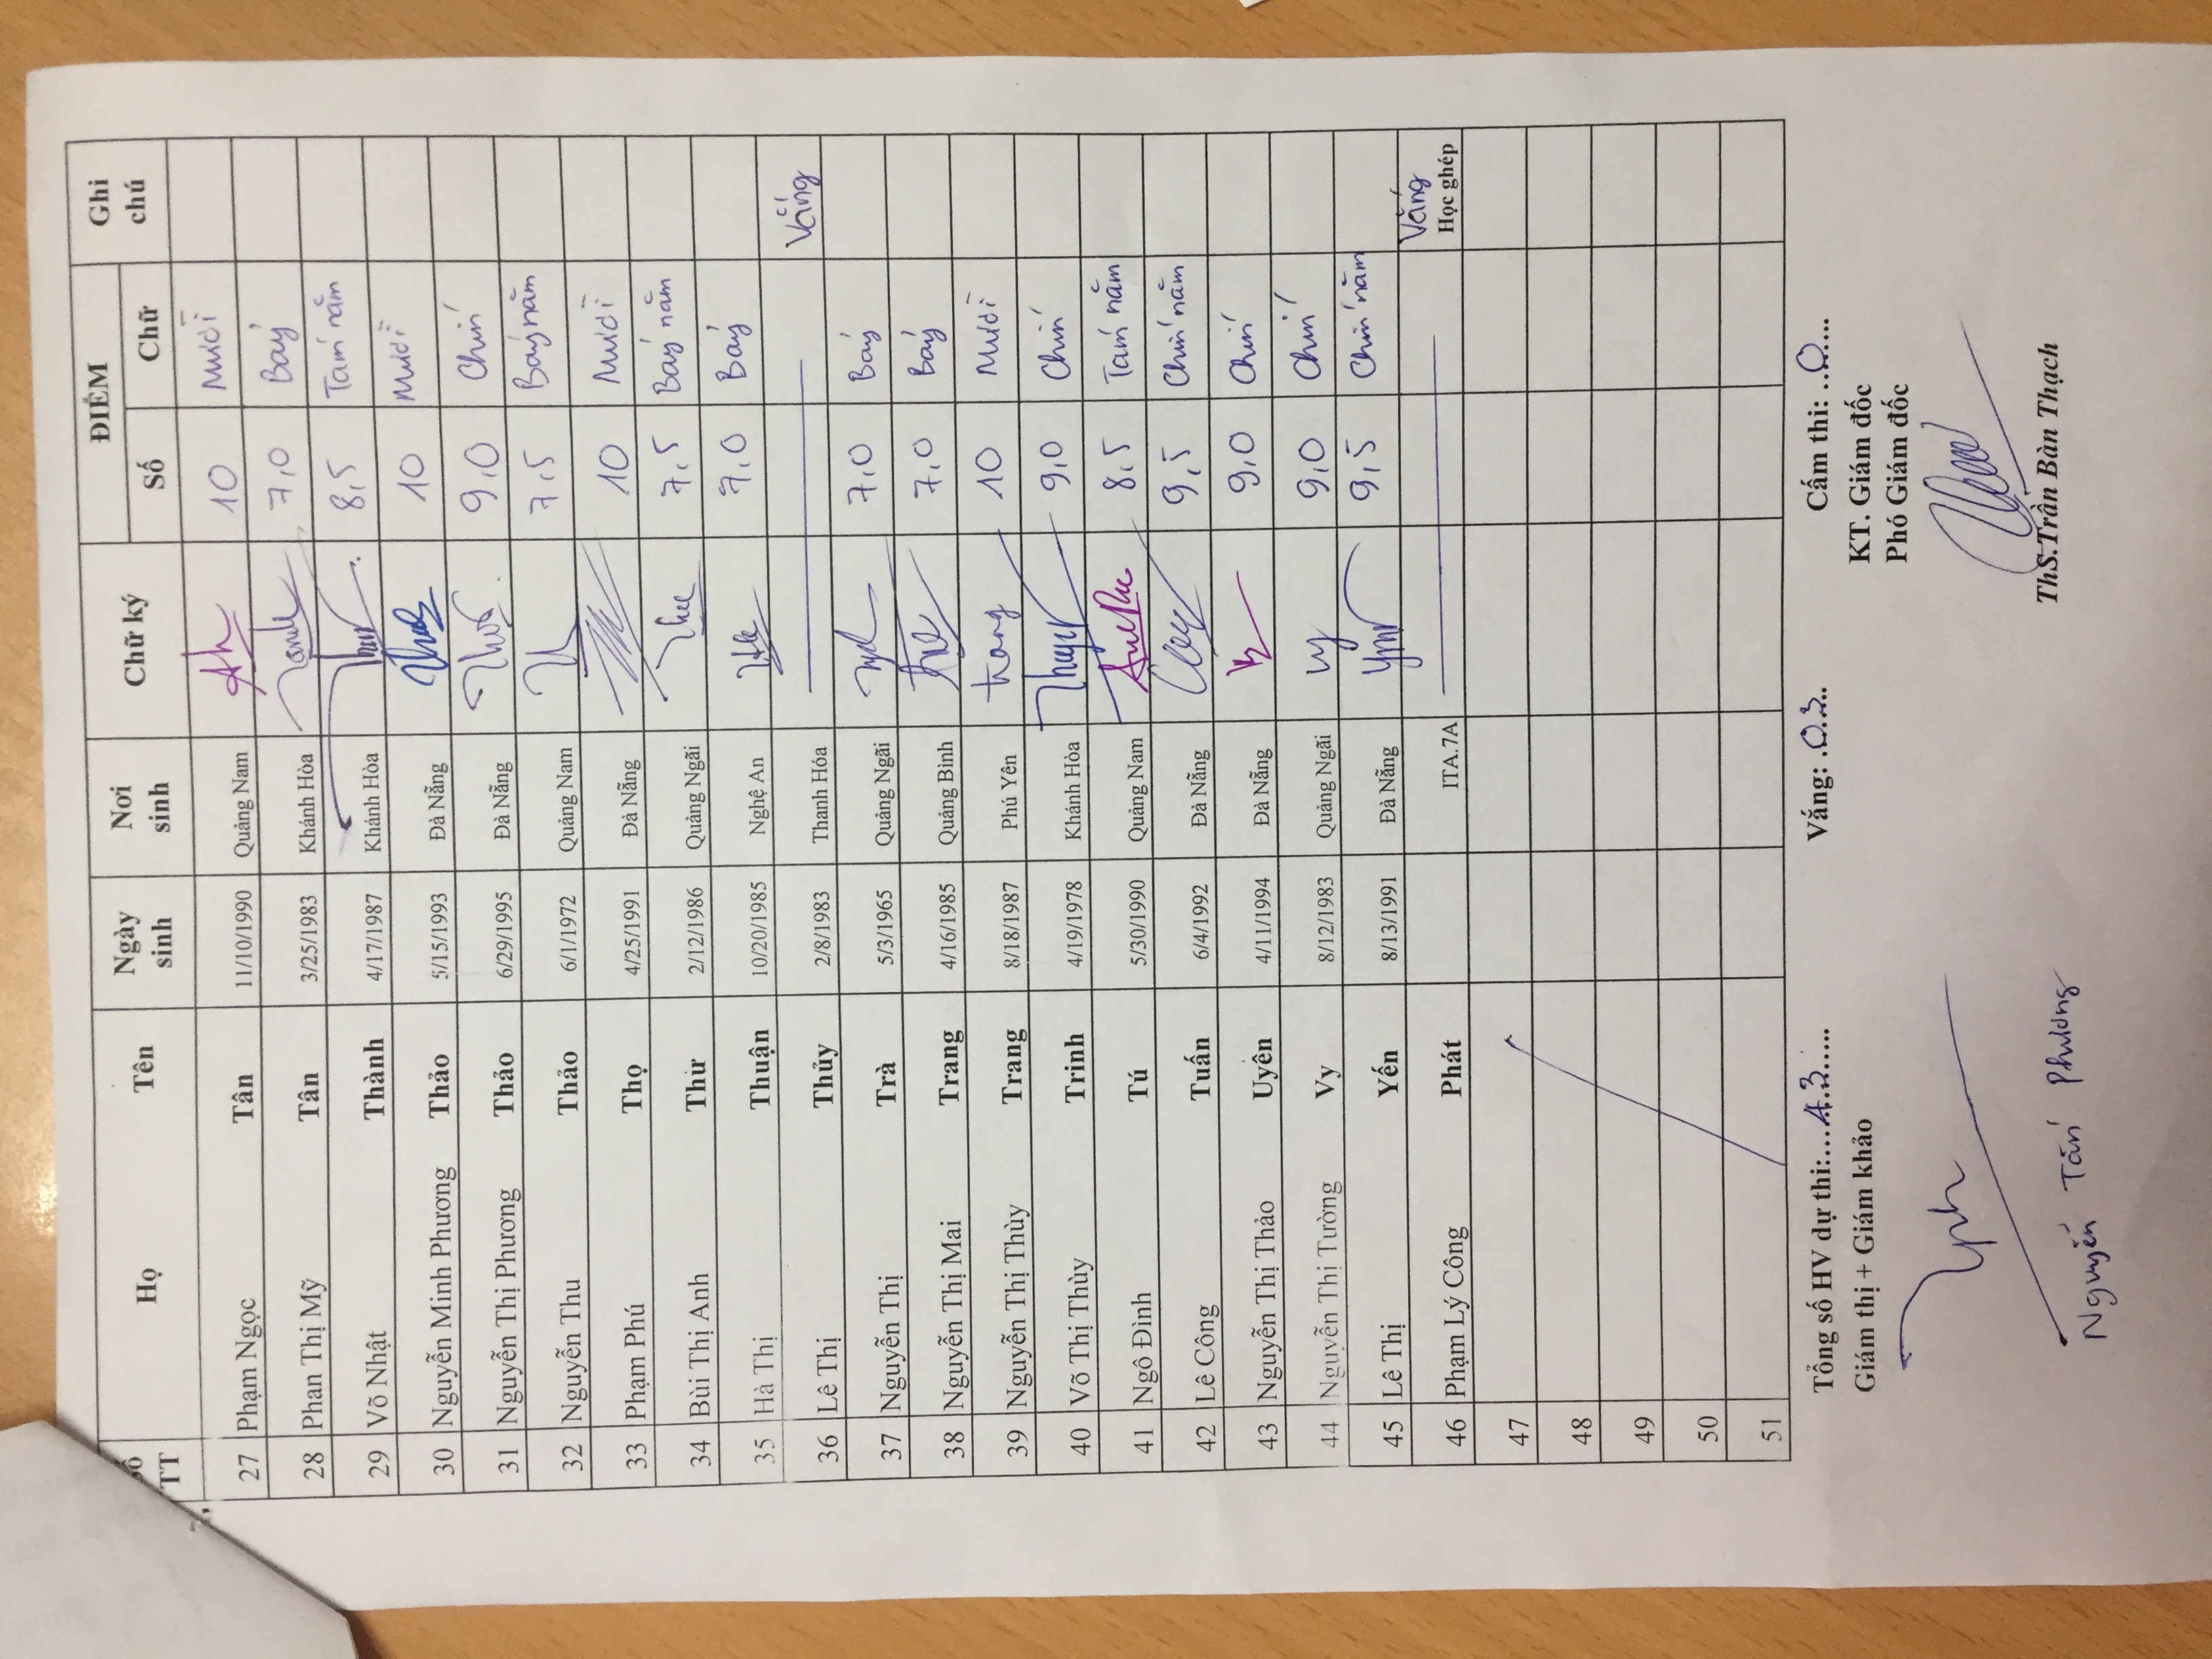 Số TT Họ Tên Ngày sinh Nơi sinh Chữ ký ĐIỂM Số Chữ Ghi chú
27 Phạm Ngọc Tân 11/10/1990 Quảng Nam 10 Mười
28 Phan Thị Mỹ Tân 3/25/1983 Khánh Hòa 7,0 Bảy
29 Võ Nhật Thành 4/17/1987 Khánh Hòa 8,5 Tám năm
30 Nguyễn Minh Phương Thảo 5/15/1993 Đà Nẵng 10 Mười
31 Nguyễn Thị Phương Thảo 6/29/1995 Đà Nẵng 9,0 Chín
32 Nguyễn Thu Thảo 6/1/1972 Quảng Nam 7,5 Bảy năm
33 Phạm Phú Thọ 4/25/1991 Đà Nẵng 10 Mười
34 Bùi Thị Anh Thư 2/12/1986 Quảng Ngãi 7,5 Bảy năm
35 Hà Thị Thuận 10/20/1985 Nghệ An 7,0 Bảy
36 Lê Thị Thủy 2/8/1983 Thanh Hóa Vắng
37 Nguyễn Thị Trà 5/3/1965 Quảng Ngãi 7,0 Bảy
38 Nguyễn Thị Mai Trang 4/16/1985 Quảng Bình 7,0 Bảy
39 Nguyễn Thị Thùy Trang 8/18/1987 Phú Yên Trang 10 Mười
40 Võ Thị Thùy Trinh 4/19/1978 Khánh Hòa 9,0 Chín
41 Ngô Đình Tú 5/30/1990 Quảng Nam 8,5 Tám năm
42 Lê Công Tuấn 6/4/1992 Đà Nẵng 9,5 Chín năm
43 Nguyễn Thị Thảo Uyên 4/11/1994 Đà Nẵng 9,0 Chín
44 Nguyễn Thị Tường Vy 8/12/1983 Quảng Ngãi Vy 9,0 Chín
45 Lê Thị Yến 8/13/1991 Đà Nẵng 9,5 Chín năm
46 Phạm Lý Công Phát ITA.7A Vắng Học ghép
47
48
49
50
51
Tổng số HV dự thi:...43...... Vắng: .03.. Cấm thi: ..0....
Giám thị + Giám khảo KT. Giám đốc
Phó Giám đốc
Nguyễn Tấn Phương ThS.Trần Bàn Thạch